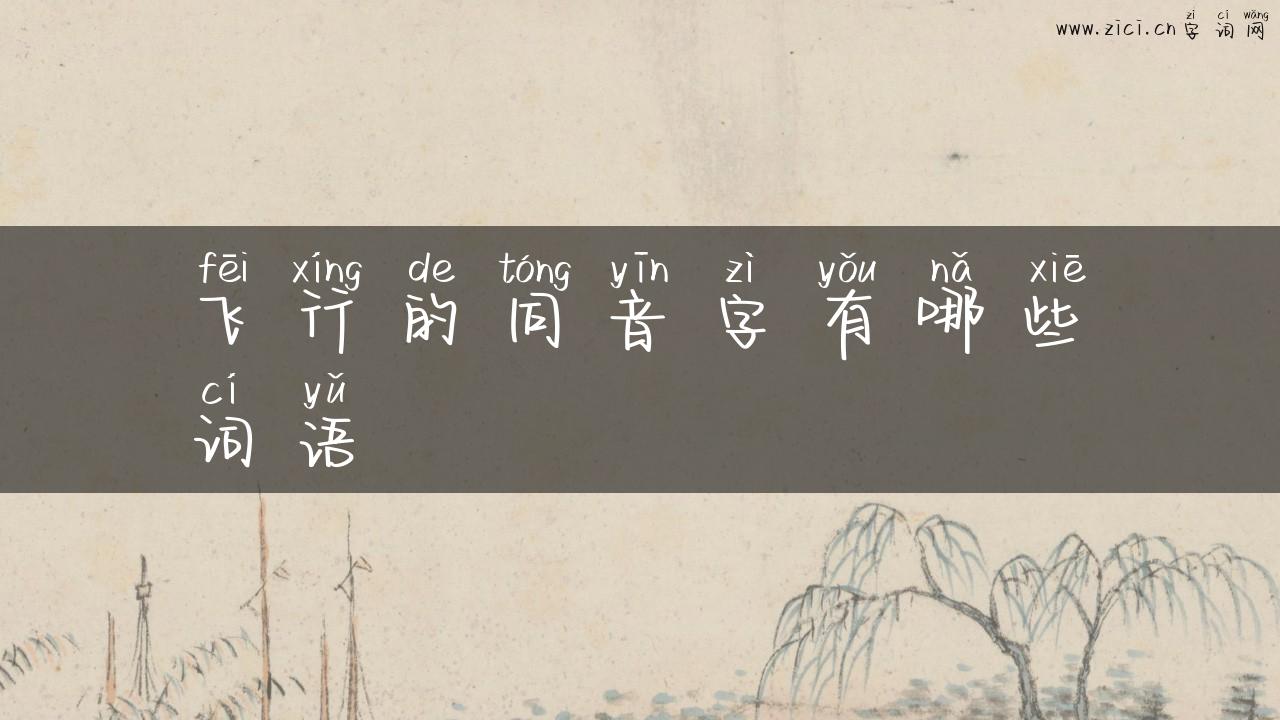 zì cí wǎng
www.zici.cn 字词网
fēi xíng de tóng yīn zì yǒu nǎ xiē
飞行的同音字有哪些
cí yǔ
词语